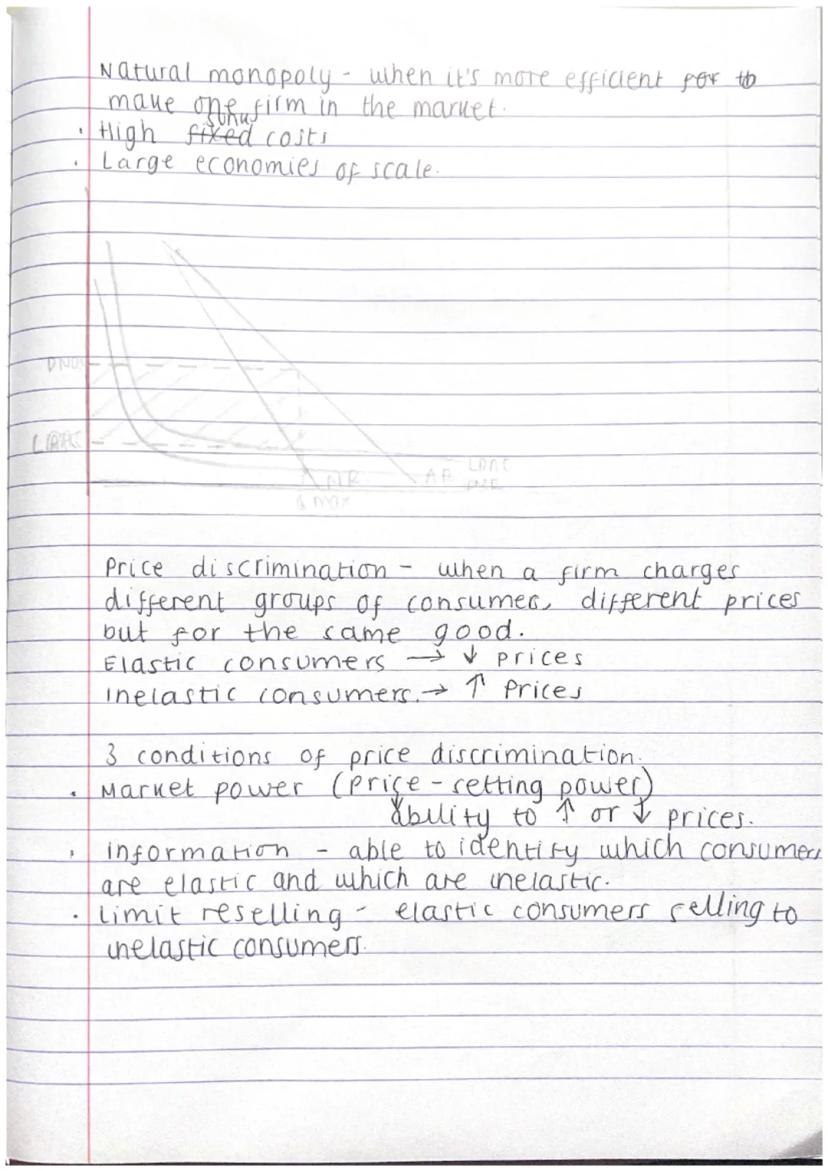 Natural monopoly - when it's more efficient for to
make one firm in the market.
sunk
· High fixed costs
· Large economies of scale.
LRAC
MR
AR
LRAC
Q max
Price discrimination - when a firm charges
different groups of consumers different prices
but for the same good.
Elastic consumers → ↓ prices
Inelastic consumers. → ↑ Prices
3 conditions of price discrimination.
· Market power (price-setting power)
ability to ↑ or ↓ prices.
· information - able to identify which consumers
are elastic and which are inelastic.
· limit reselling - elastic consumers selling to
inelastic consumers.